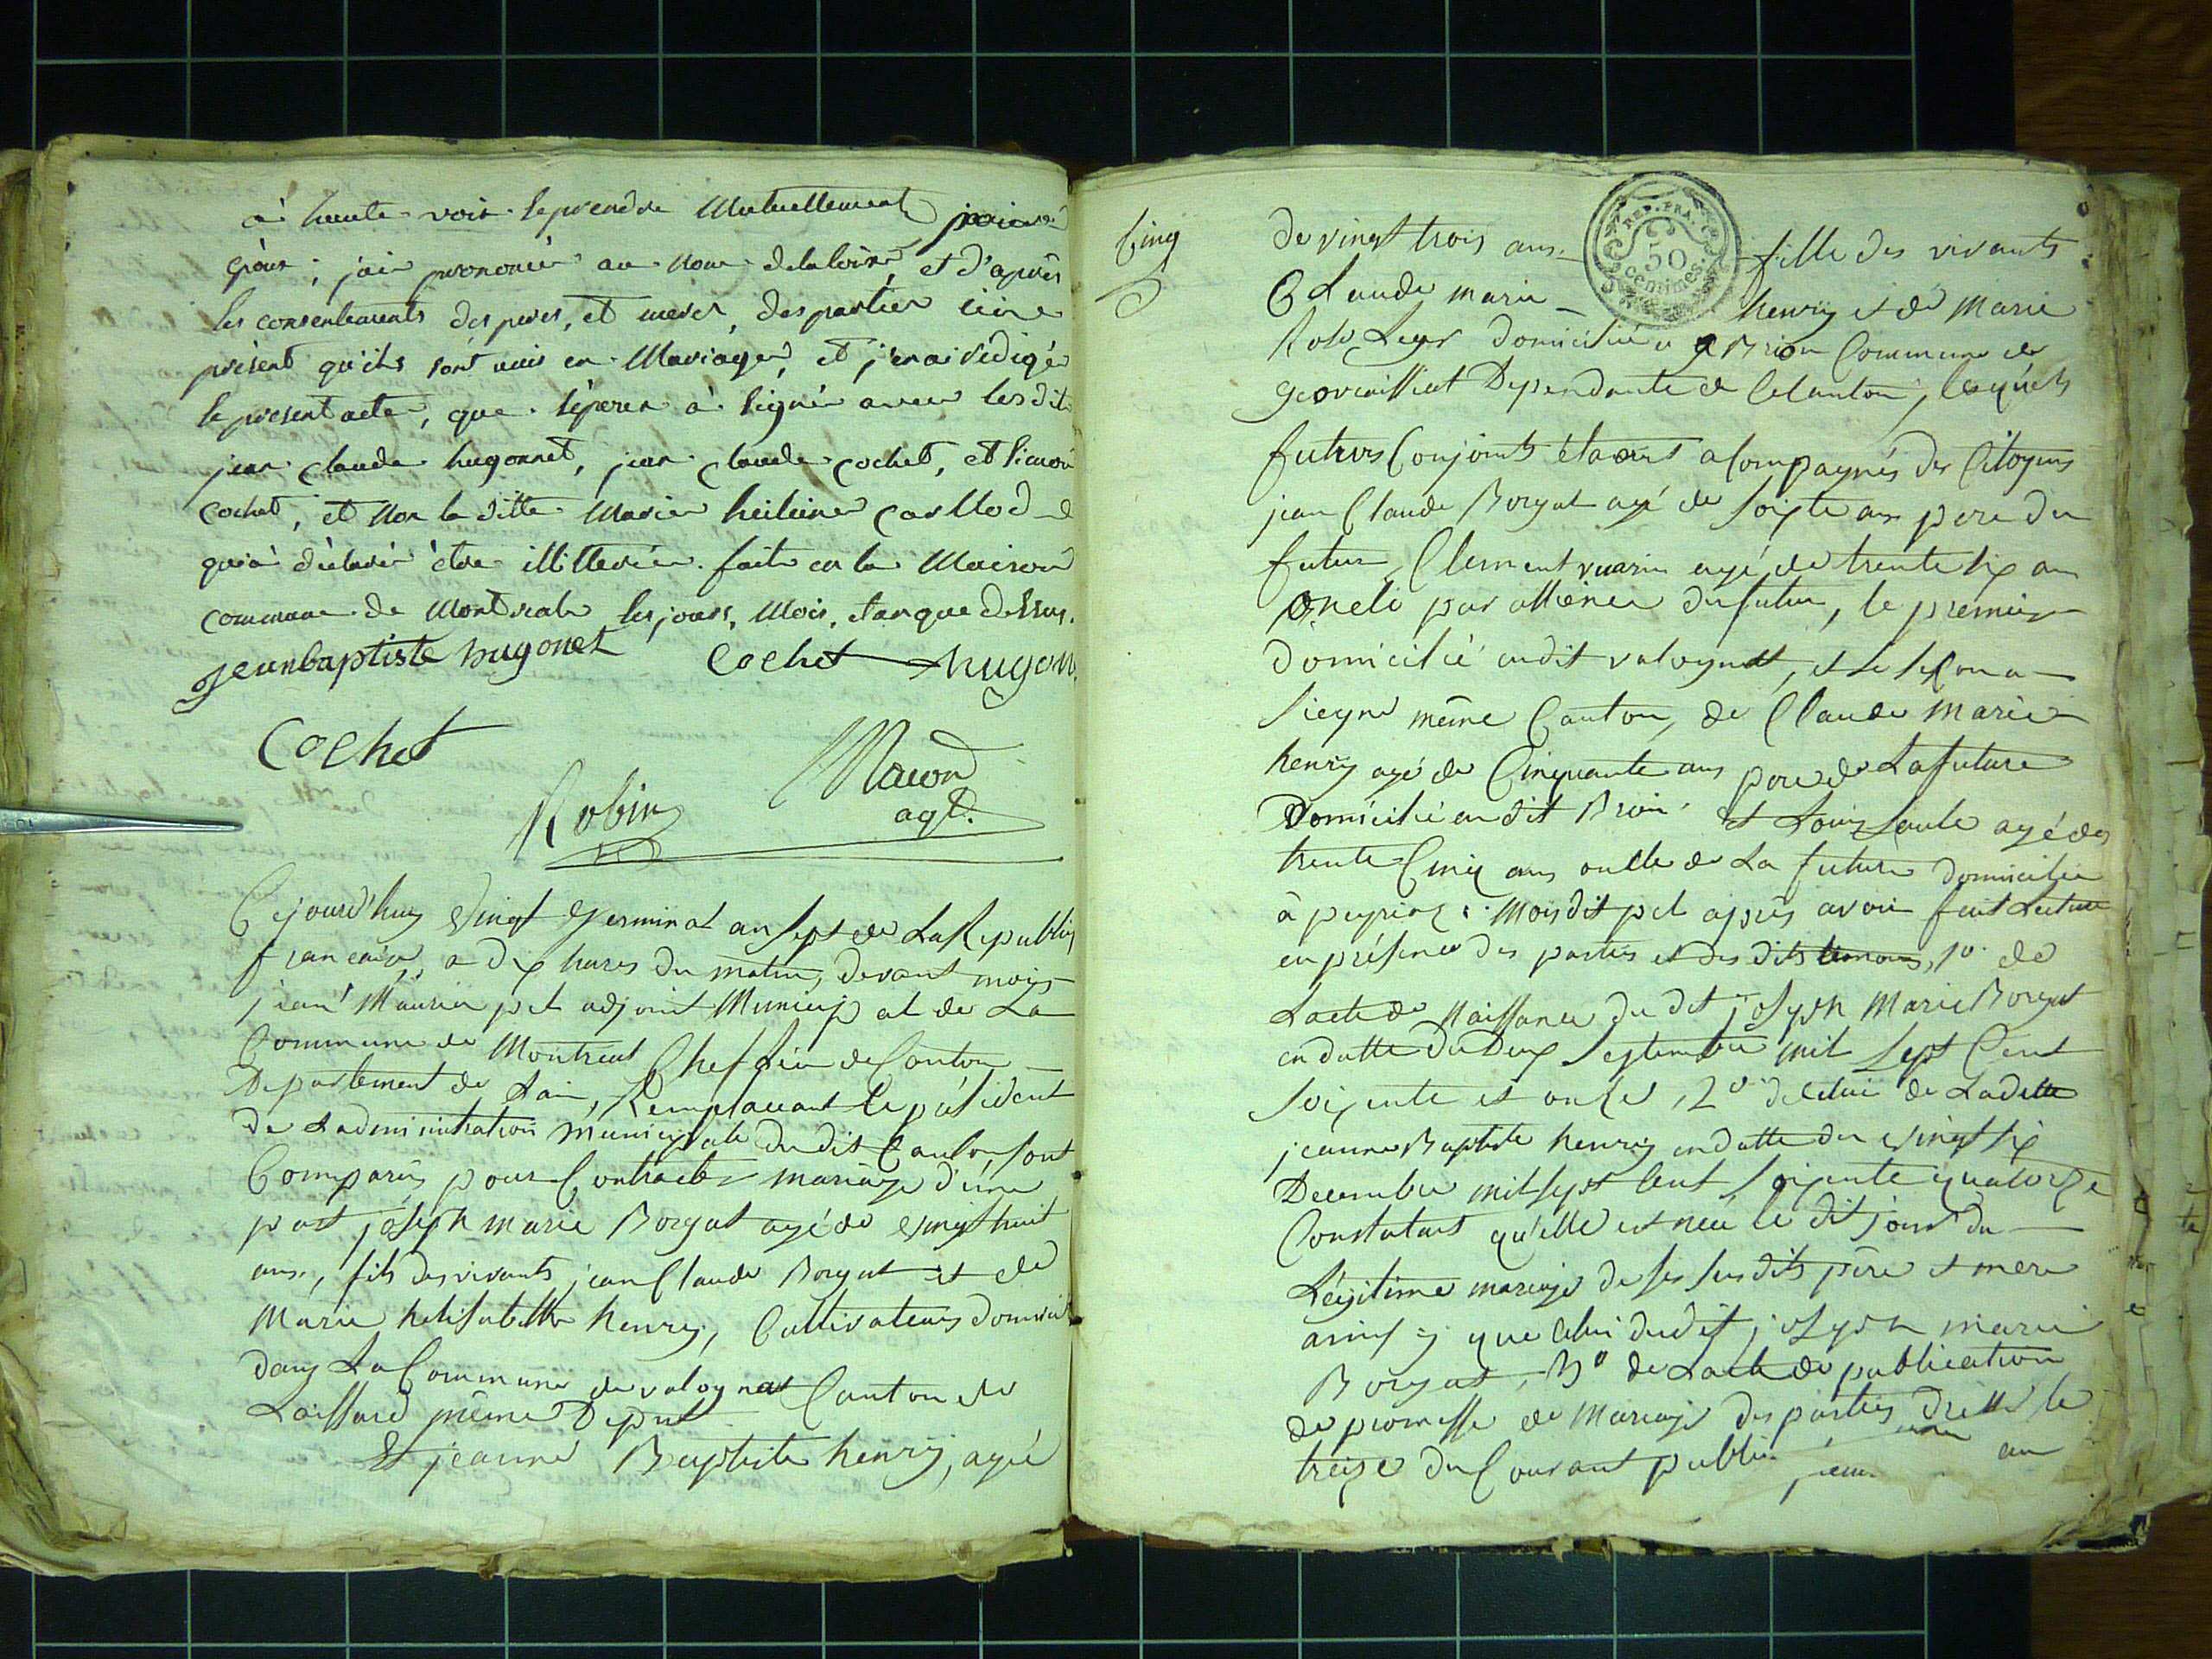 à haute voix se prendre Mutuellement pour
Epoux, j'ai prononcé au nom de la loi, et d'après
les consentements des peres, et meres, des parties ici
présent qu'ils sont unis en Mariage, et j'en ai rédigé
le present acte, que l'épeux à signé avec lesdits
jean claude hugonnet, jean claude cochet, et
cochet, et non la ditte Marie heileine Carllod
qui à déclaré être illitterée. fait en la Maison
commune de Montreal les jours, Mois, et an que dessus.
jeanbaptiste hugonet Cochet hugon
Cochet
Robin Macon
agt.
Cejourd'huy Vingt Germinal an sept de La Republiq
francaise, a dix heures du matin, devant mois
jean Maurier pet adjoint Municip al de La
Commune de Montreal Chef lieu de Canton
Departement de Lain, Remplacant le président
de Ladministration Municipale du dit Canton, sont
Comparus pour Contracter mariage d'une
part joseph marie Borgat agé de Vingt huit
ans, fils des vivants jean Claude Borgat et de
Marie helisabethe henry, Cultivateurs domicil
dans La Commune de valognat Canton de
Laissard même Depnt
Et jeanne Baptiste henry, agée
Cinq
de vingt trois ans fille des vivants
REP. FRA.
50
centimes.
Claude marie henry et de Marie
domicilié a Brion Commune de
geovraissiat Dependante de Ce Canton, lesquels
futurs Conjoints étant acompagnés des Citoyens
jean Claude Borgat agé de soixte ans pere du
futur, Clement vuarin agé de trente six ans
oncle par alliance du futur, le premier
domicilié en dit valognat, et le second a
Siegne même Canton, de Claude Marie
henry agé de Cinquante ans pere de La future
Domicilié en dit Brion et Louis agé de
trente Cinq ans oncle de La future domicilié
à peyriaz. Mois dit pet après avoir fait Lecture
en présence des parties et des dits temoins, 1º. de
Lacte de Naissance du dit joseph Marie Borgat
en datte du Deux Septembre mil sept Cent
soixente et onze, 2º de Celui de Laditte
jeanne Baptiste henry en datte du Vingt six
Decembre mil sept Cent soixente quatorze
Constatant qu'elle est neé le dit jour du
Légitime mariage de ses susdits père et mere
ainsÿ que Celui dudit joseph marie
Borgat, 3º de Lacte de publication
de promesse de Mariage des parties dressé le
treize du Courant publié